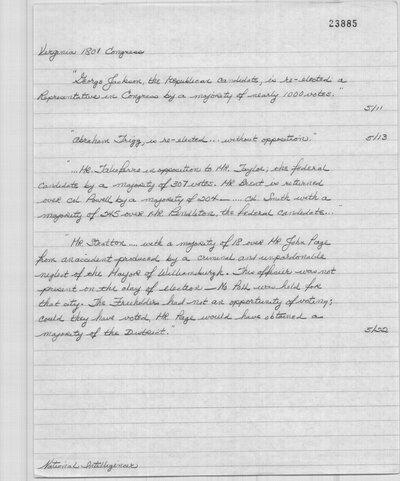 23885
Virginia 1801 Congress
"George Jackson, the Republican candidate, is re-elected a
Representative in Congress by a majority of nearly 1000 votes."
5/11
"Abraham Trigg, is re-elected ... without opposition."
5/13
"... Mr. Taliaferro in opposition to Mr. Taylor; the federal
candidate by a majority of 307 votes. Mr Brent is returned
over Col Powell by a majority of 204 ...... Col. Smith with a
majority of 245 over Mr Pendleton, the federal candidate..."
"Mr Stratton .... with a majority of 18 over Mr John Page
from an accident produced by a criminal and unpardonable
neglect of the Mayor of Williamsburgh. This officer was not
present on the day of election — No Poll was held for
that city. The Freeholders had not an opportunity of voting;
could they have voted, Mr Page would have obtained a
majority of the District."
5/22
National Intelligencer